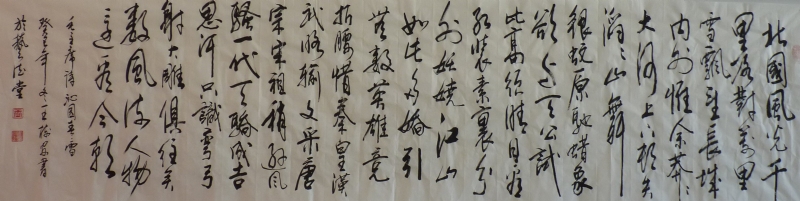 北國風光千
里冰封萬里
雪飄望長城
內外惟余莽々
大河上下頓失
滔々山舞
銀蛇原馳蠟象
欲与天公試
比高須晴日看
紅裝素裹分
外妖嬈江山
如此多嬌引
無數英雄競
折腰惜秦皇漢
武略輸文采唐
宗宋祖稍遜風
騷一代天驕成吉
思汗只識彎弓
射大雕俱往矣
數風流人物
還看今朝
毛主席詩沁園春雪
癸巳年冬王書
於藝堂